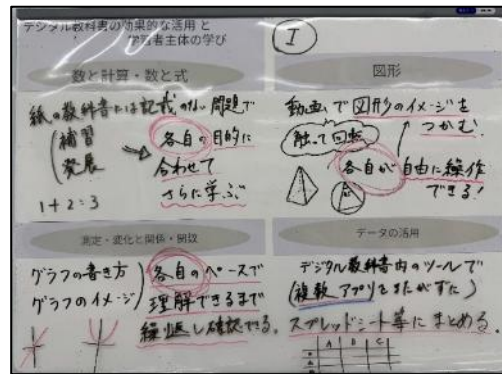 デジタル教科書の効果的な活用 と
学習者主体の学び
I
数と計算・数と式
紙の教科書には記載のない問題で
補習
発展
各自の目的に
合わせて
さらに学ぶ
1+2=3
図形
動画で図形のイメージを
つかむ。
触って回転
各自が自由に操作
できる!
測定・変化と関係・関数
グラフの書き方
グラフのイメージ
各自のペースで
理解できるまで
繰り返し確認できる。
データの活用
デジタル教科書内のツールで
(複数アプリをまたがずに)
スプレッドシート等にまとめる。
A B C